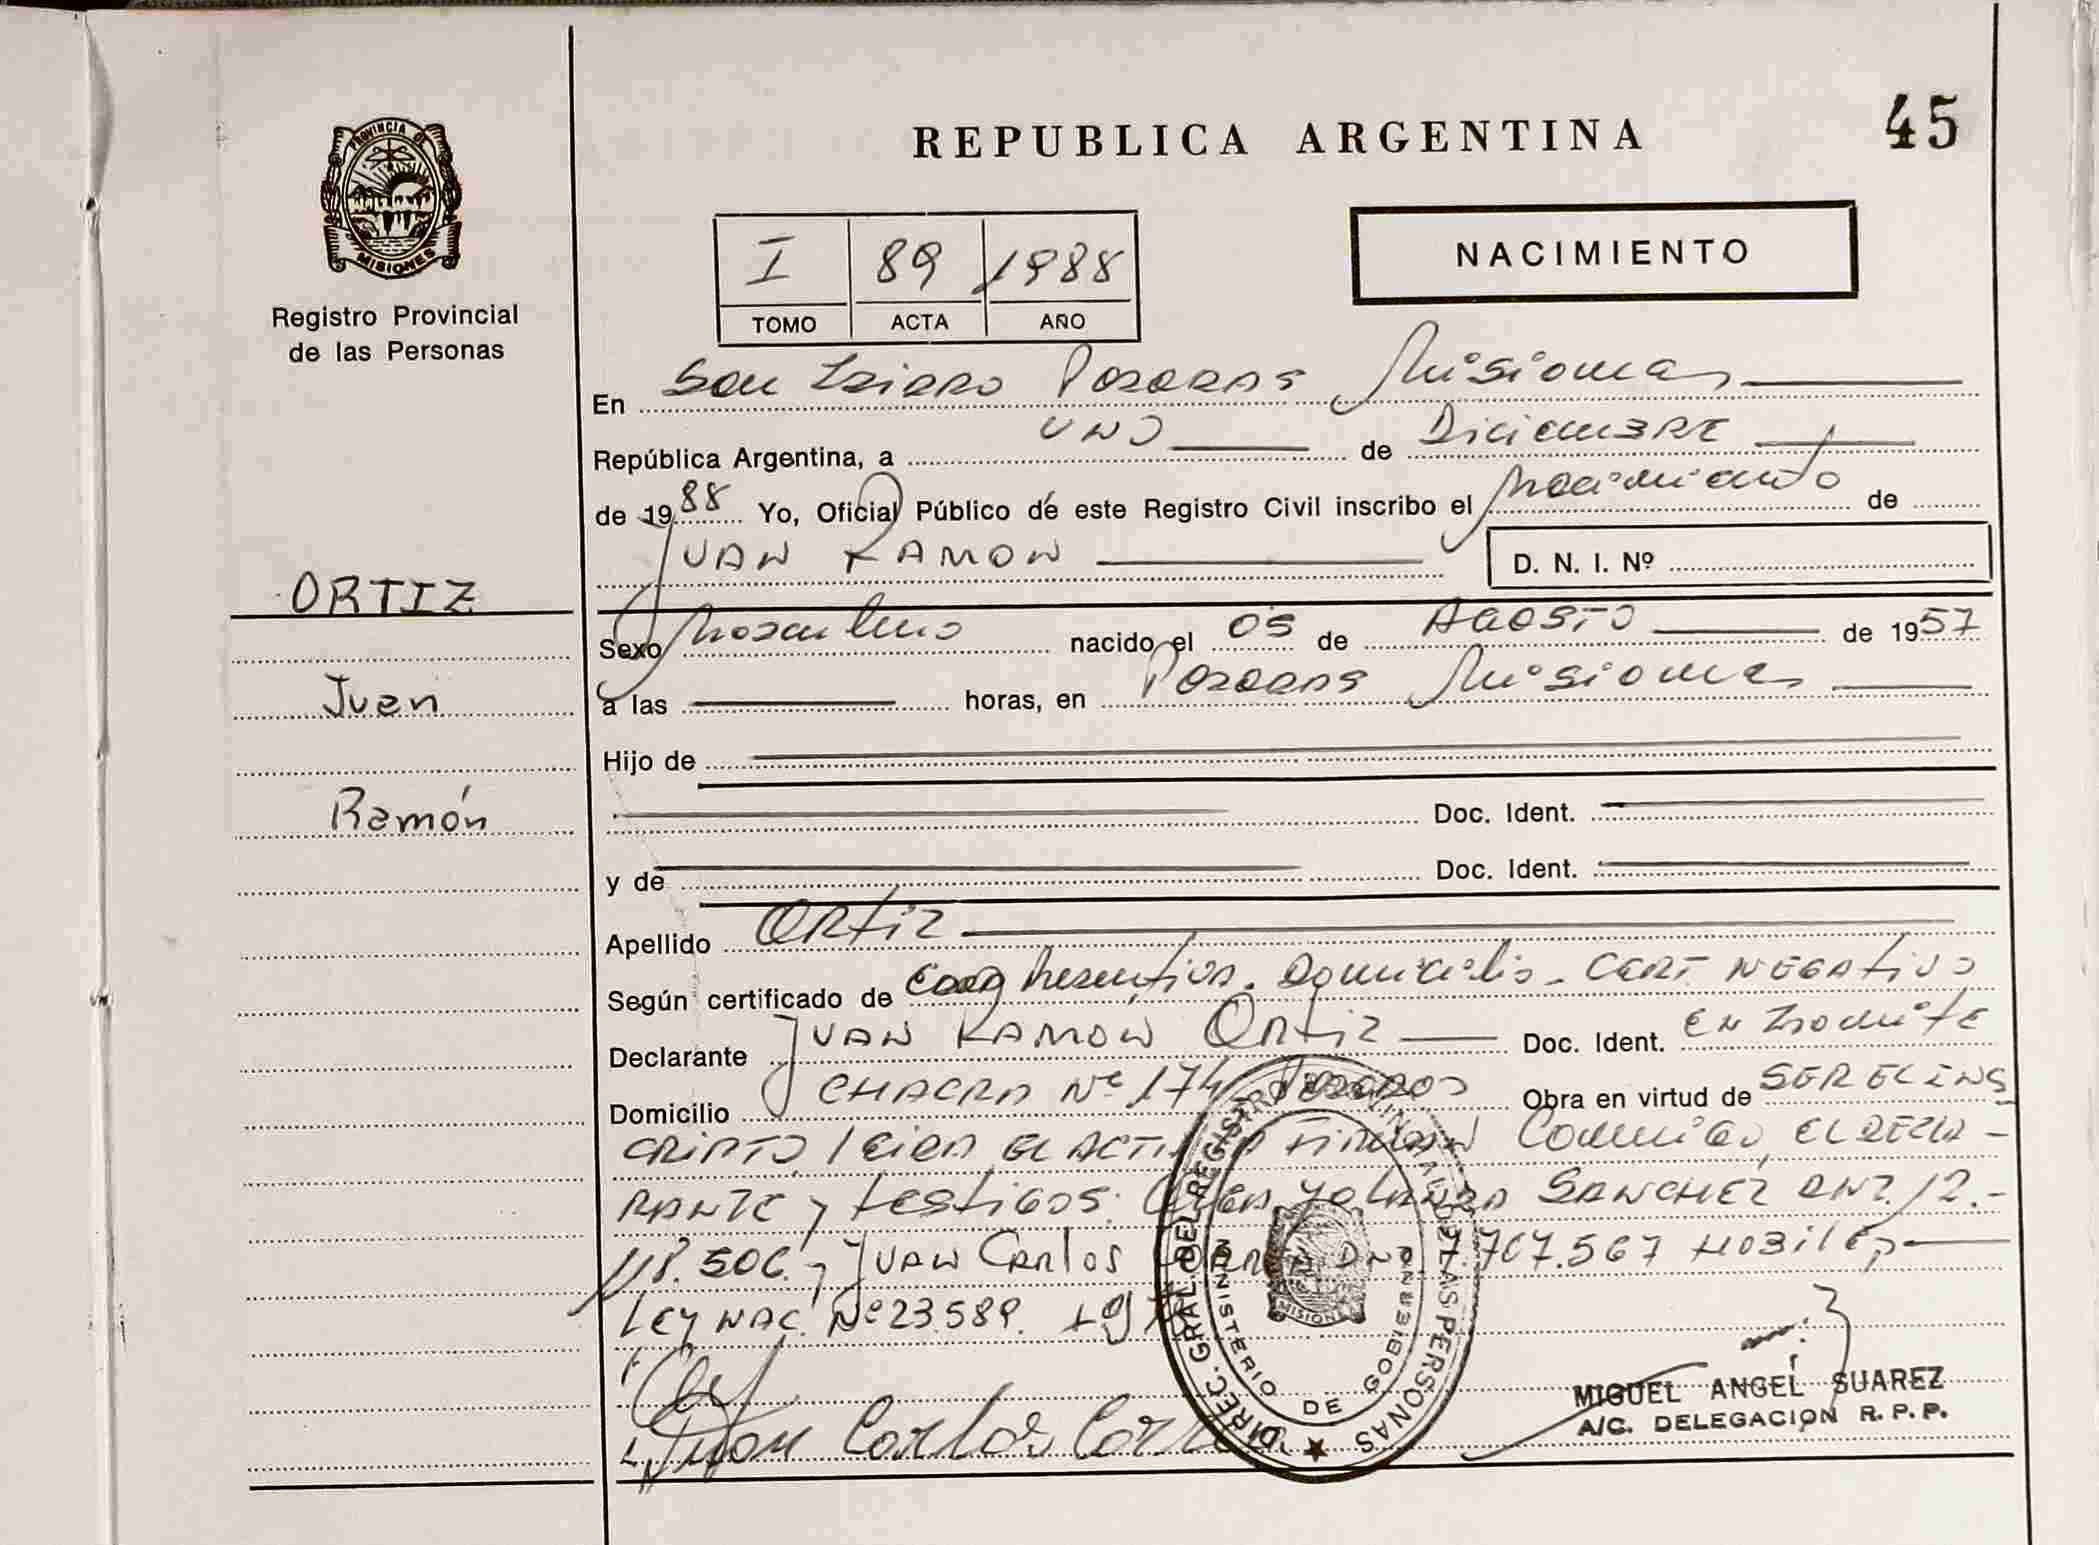 REPUBLICA ARGENTINA
45
PROVINCIA DE
MISIONES
Registro Provincial
de las Personas
I 89 1988
TOMO ACTA AÑO
NACIMIENTO
En San Isidro Posadas Misiones
República Argentina, a UNO de Diciembre
de 1988 Yo, Oficial Público de este Registro Civil inscribo el nacimiento de
JUAN RAMON
D. N. I. Nº
ORTIZ
Juan
Ramón
Sexo Masculino nacido el 05 de AGOSTO de 1957
a las horas, en Posadas Misiones
Hijo de
Doc. Ident.
y de Doc. Ident.
Apellido ORTIZ
Según certificado de Domicilio - CERT NEGATIVO
Declarante JUAN RAMON ORTIZ Doc. Ident. EN TRAMITE
Domicilio CHACRA Nº 174 Posadas Obra en virtud de SER REINS
CRIPTO, LEIDA EL ACTA FIRMAN Conmigo, EL DECLA-
RANTE y testigos. YOLANDA SANCHEZ DNI. 12.-
118.506. y JUAN CARLOS 767.567
LEY NAC. Nº 23589.
Juan Carlos
DIREC. GRAL. DEL REGISTRO PROVINCIAL DE LAS PERSONAS
MINISTERIO DE GOBIERNO
MISIONES
MIGUEL ANGEL SUAREZ
A/C. DELEGACION R. P. P.